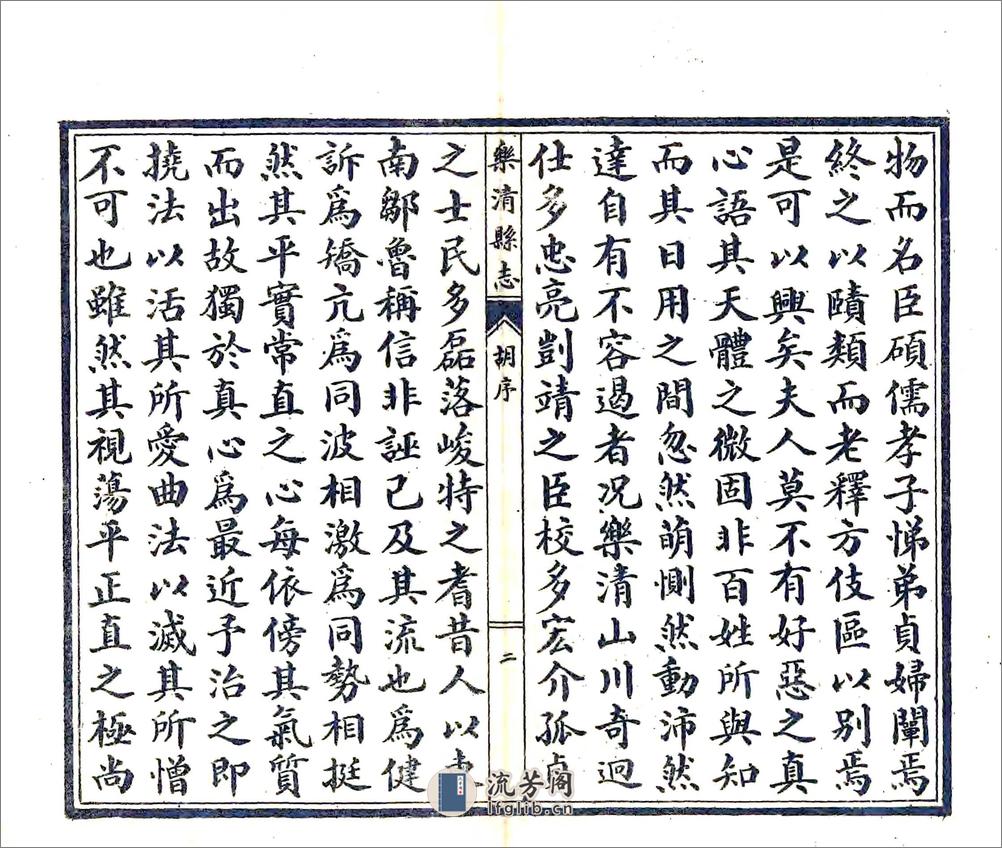 物而名臣碩儒孝子悌弟貞婦闡焉
終之以賾類而老釋方伎區以别焉
是可以興矣夫人莫不有好惡之真
心語其天體之微固非百姓所與知
而其日用之間忽然萌惻然動沛然
達自有不容遏者況樂清山川奇迥
仕多忠亮剴靖之臣校多宏介孤貞
樂清縣志
胡序
二
之士民多磊落峻特之耆昔人以
南鄒魯稱信非誣已及其流也爲健
訴爲矯亢爲同波相激爲同勢相挺
然其平實常直之心每依傍其氣質
而出故獨於真心爲最近予治之即
撓法以活其所愛曲法以滅其所憎
不可也雖然其視蕩平正直之極尚
流芳阁
lfglib.cn